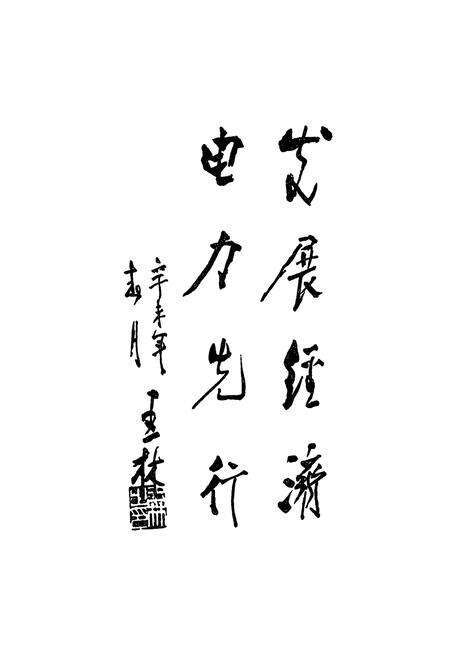 发展經濟
电力先行
辛未年
春月
王林